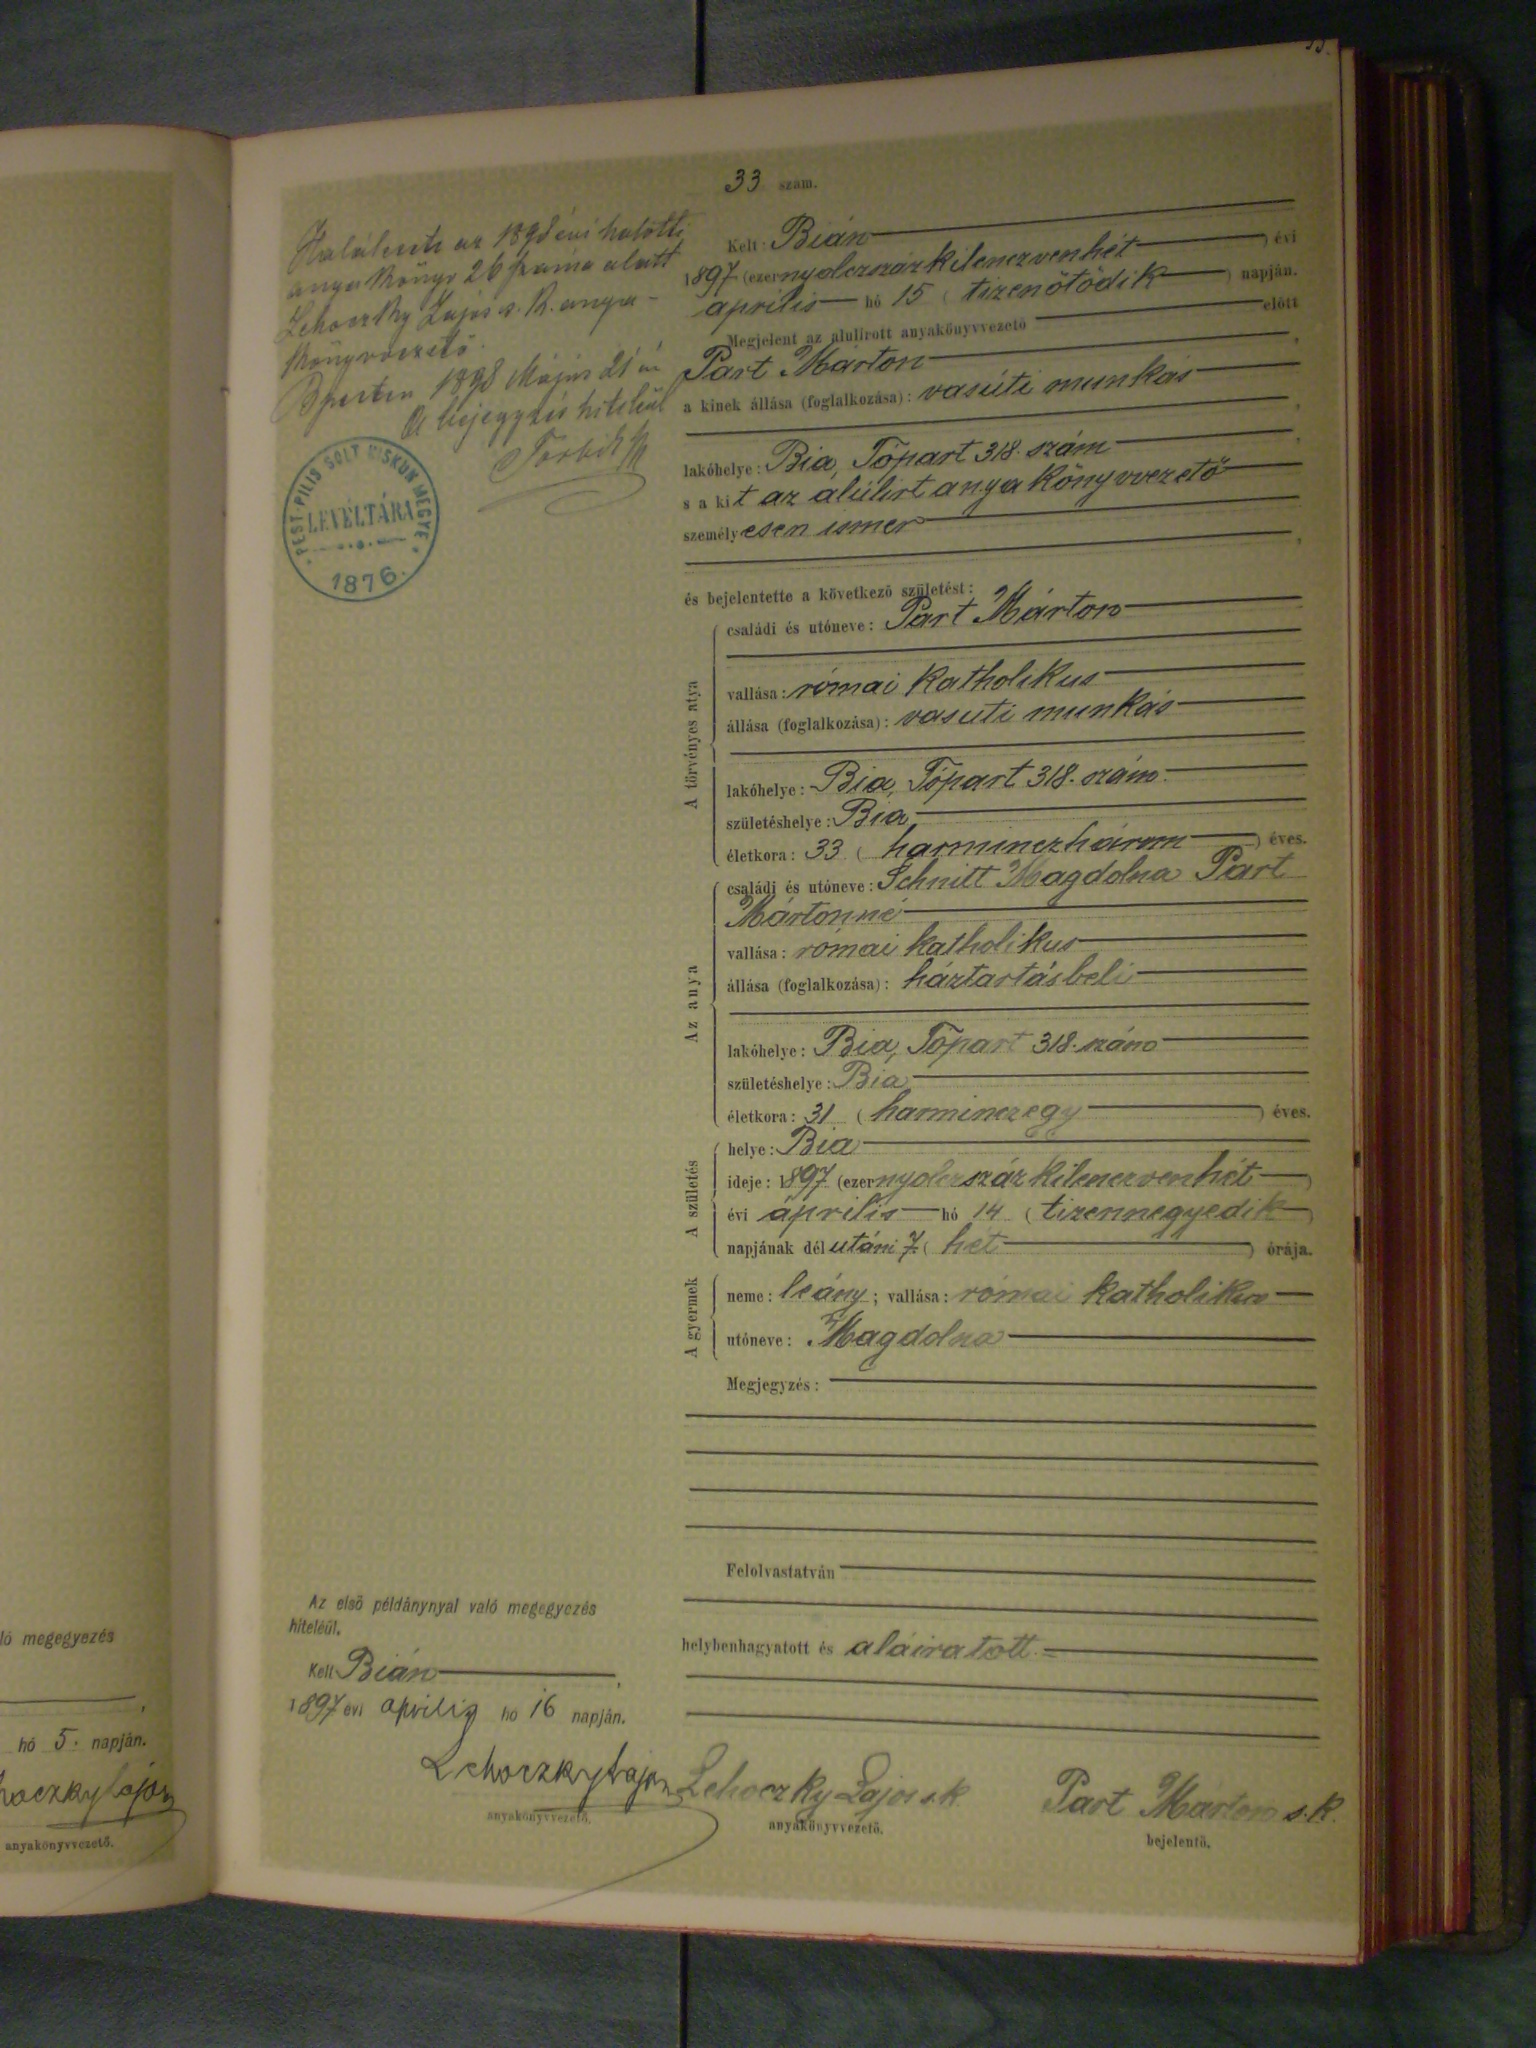 33 szám.
Halálesete az 1898 évi halotti
anyakönyv 26 száma alatt
Lehoczky Lajos s. k. anya-
könyvvezető.
Bpesten 1898 Május 21 én
A bejegyzés hiteléül
PEST-PILIS SOLT KISKUN MEGYE
LEVÉLTÁRA
1876.
Kelt: Bián
1897 (ezernyolczszázkilenczvenhét) évi
április hó 15 (tizenötödik) napján.
Megjelent az alulirott anyakönyvvezető előtt
Part Márton
a kinek állása (foglalkozása): vasúti munkás
lakóhelye: Bia, Tópart 318. szám
s a kit az alúlirt anyakönyvvezető
személyesen ismer
és bejelentette a következő születést:
A törvényes atya
családi és utóneve: Part Márton
vallása: római katholikus
állása (foglalkozása): vasuti munkás
lakóhelye: Bia, Tópart 318. szám.
születéshelye: Bia
életkora: 33 (harminczhárom) éves.
Az anya
családi és utóneve: Schnitt Magdolna Part
Mártonné
vallása: római katholikus
állása (foglalkozása): háztartásbeli
lakóhelye: Bia, Tópart 318. szám
születéshelye: Bia
életkora: 31 (harminczegy) éves.
A születés
helye: Bia
ideje: 1897 (ezernyolczszázkilenczvenhét)
évi április hó 14 (tizennegyedik)
napjának délutáni 7 (hét) órája.
A gyermek
neme: leány; vallása: római katholikus
utóneve: Magdolna
Megjegyzés:
Felolvastatván
helybenhagyatott és aláiratott.
Az első példánynyal való megegyezés
hiteléül.
Kelt Bián
1897 évi április hó 16 napján.
Lehoczky Lajos
anyakönyvvezető.
Lehoczky Lajos s.k
anyakönyvvezető.
Part Márton s.k.
bejelentő.
ló megegyezés
hó 5. napján.
hoczky Lajos
anyakönyvvezető.